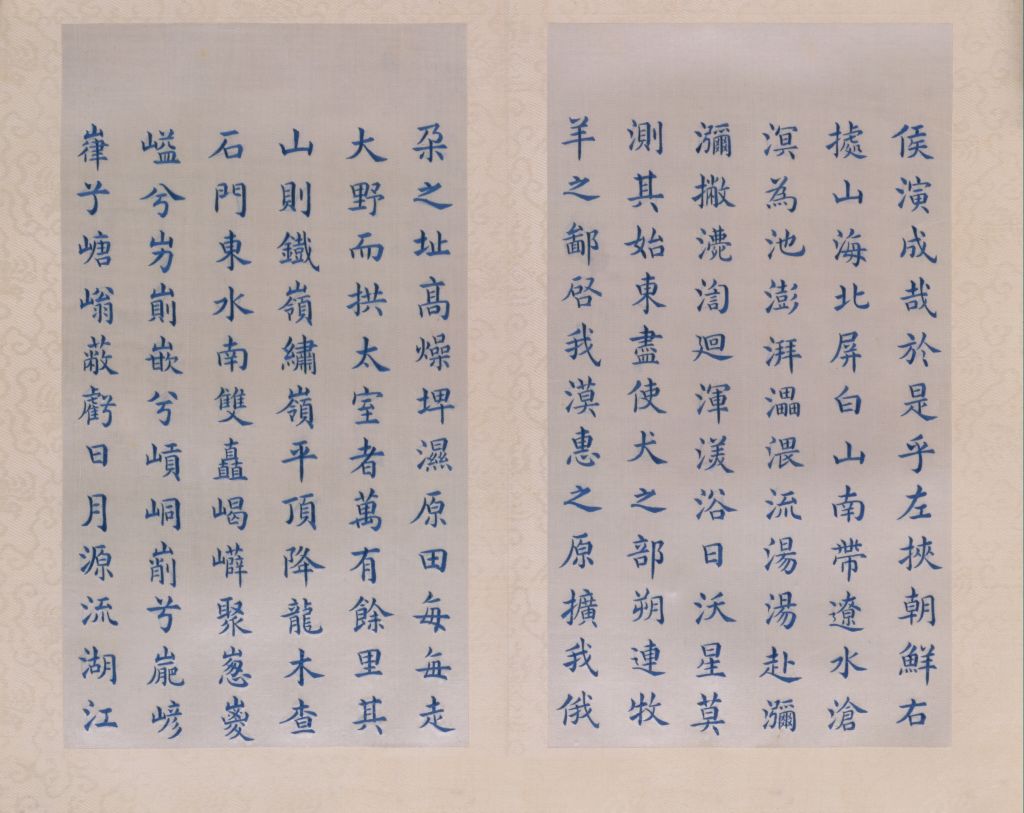 侯演成哉於是乎左挾朝鮮右
據山海北屏白山南帶遼水滄
溟為池澎湃渨流湯湯赴瀰
瀰撇渹廻渾渼浴日沃星莫
測其始東盡使犬之部朔連牧
羊之鄙啓我漠惠之原擴我俄
朶之址高燥埤濕原田每每走
大野而拱太室者萬有餘里其
山則鐵嶺繡嶺平頂降龍木查
石門東水南雙矗嵑嶭聚嵏
兮屴崱嵌兮嵿峒兮嵾
嵂兮嵣嵡蔽虧日月源流湖江